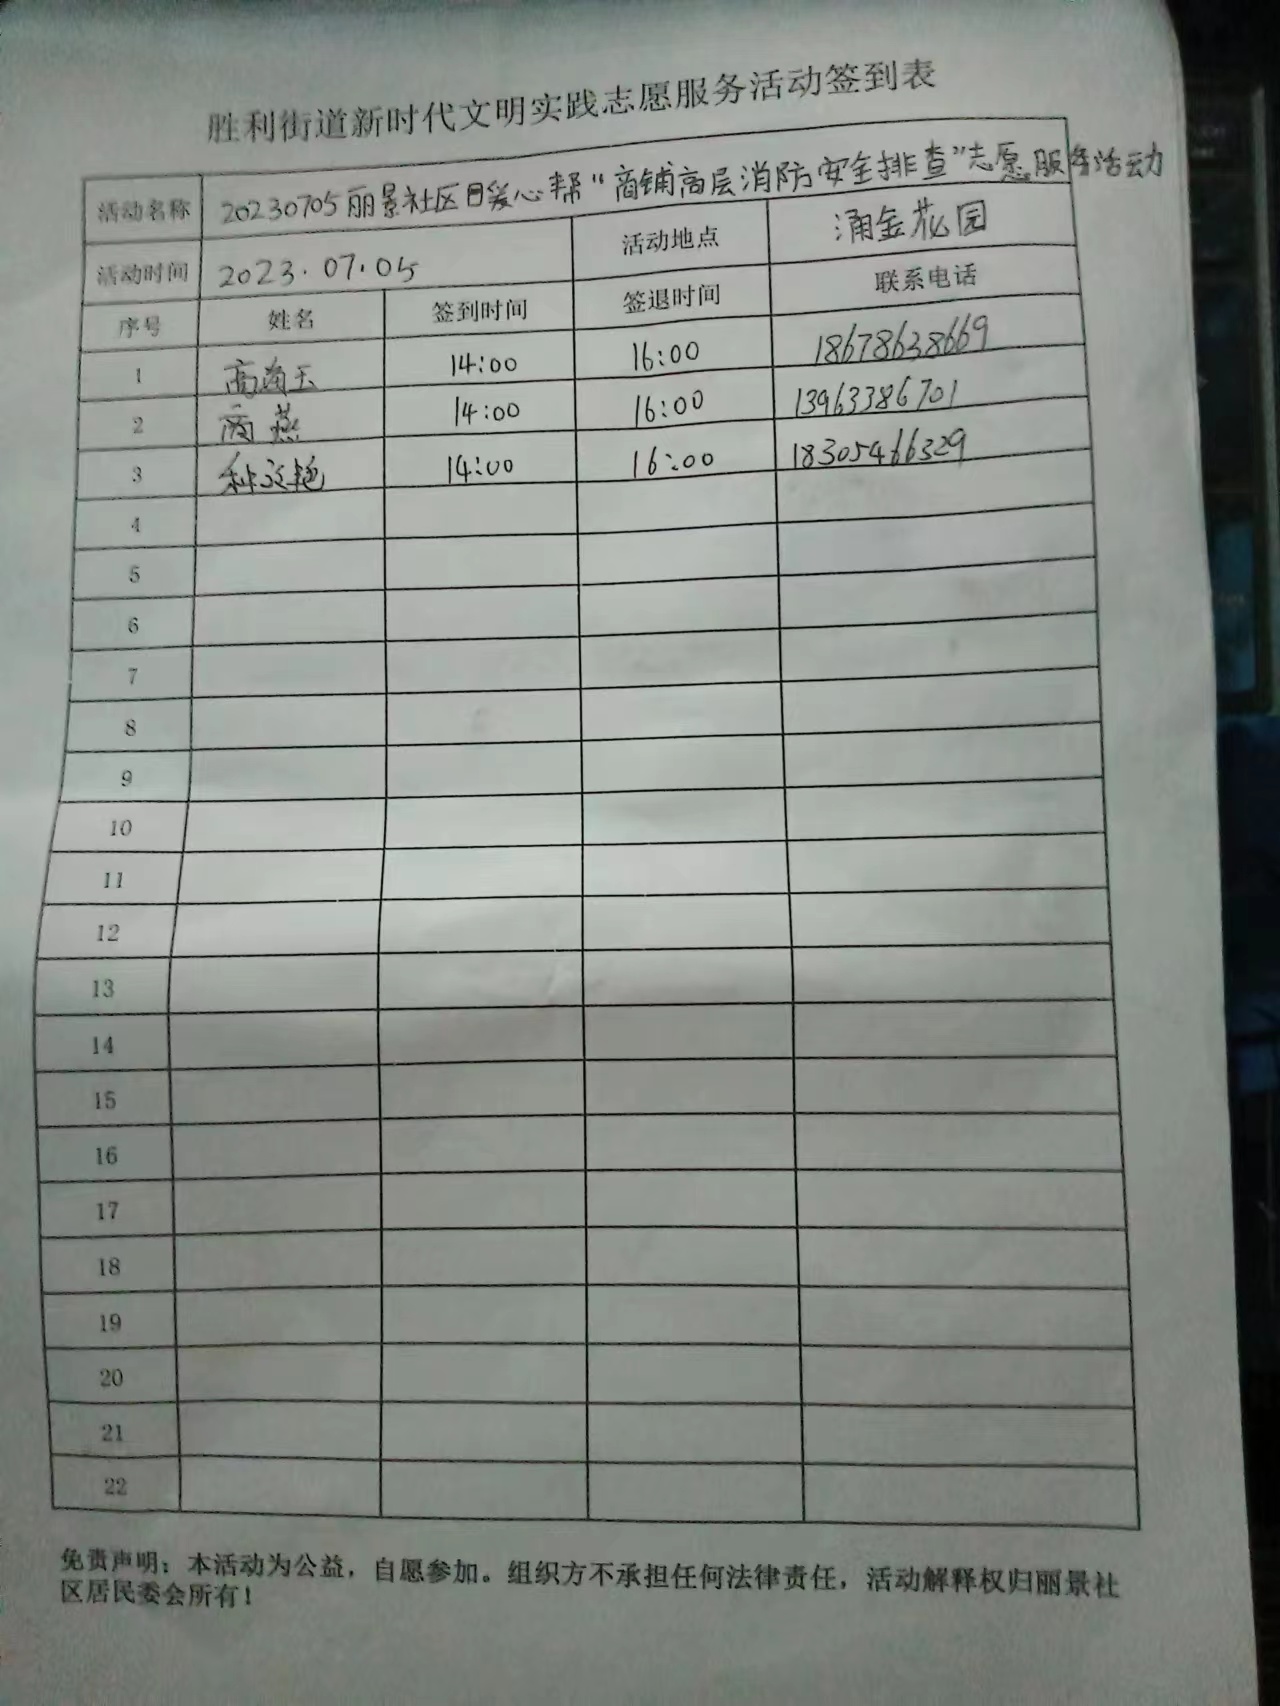 胜利街道新时代文明实践志愿服务活动签到表
活动名称 20230705丽景社区日爱心帮“商铺高层消防安全排查”志愿服务活动
活动时间 2023.07.05 活动地点 涌金花园
序号 姓名 签到时间 签退时间 联系电话
1 14:00 16:00 18678638669
2 商燕 14:00 16:00 13963386701
3 14:00 16:00 18305466329
4
5
6
7
8
9
10
11
12
13
14
15
16
17
18
19
20
21
22
免责声明：本活动为公益，自愿参加。组织方不承担任何法律责任，活动解释权归丽景社
区居民委会所有！